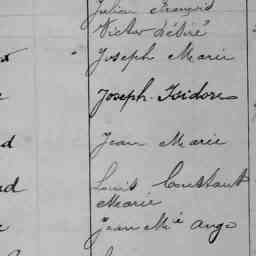 Julien François
Victor Désiré
Joseph Marie
Joseph Isidore
Jean Marie
Louis Constant
Marie
Jean Mie Ange